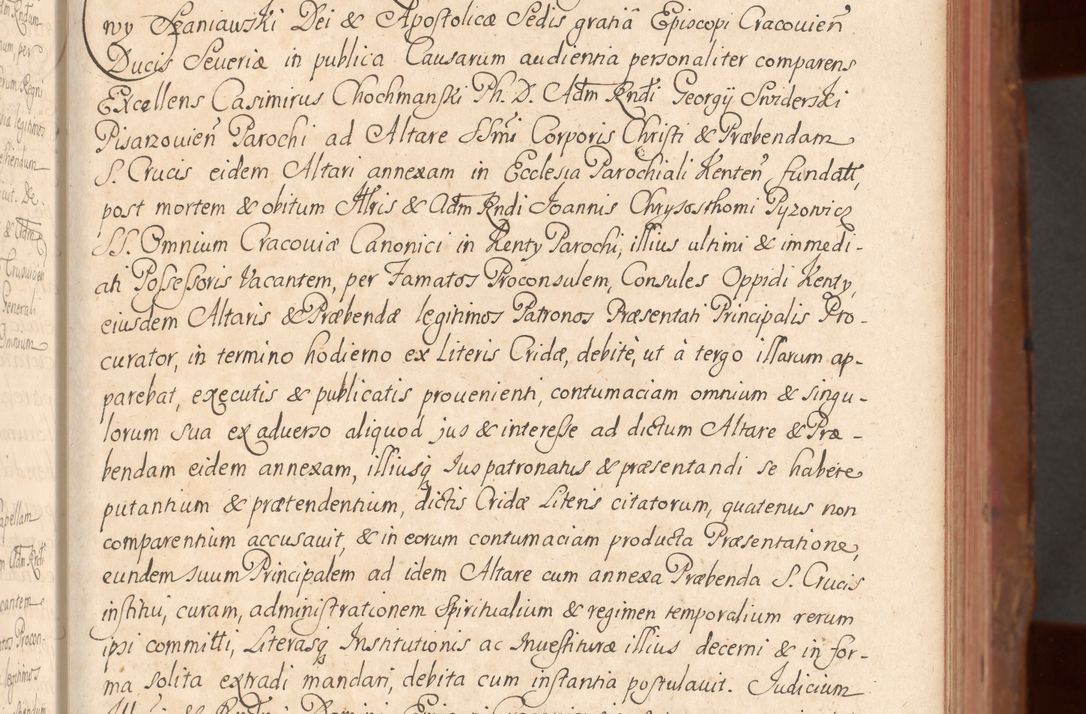 wy Szaniawski Dei & Apostolicæ Sedis gratiâ Episcopi Cracovien̄
Ducis Severiæ in publica Causarum audientia personaliter comparens
Excellens Casimirus Chochmanski Ph. D. Adm Rndi Georgÿ Swiderski
Pisarzovien̄ Parochi ad Altare SSmi Corporis Christi & Præbendam
S. Crucis eidem Altari annexam in Ecclesia Parochiali Kenten̄ fundati,
post mortem & obitum Illris & Adm Rndi Joannis Chrysosthomi Pyzowicz
SS. Omnium Cracoviæ Canonici in Kenty Parochi, illius ultimi & immedi-
ati Possessoris Vacantem, per Famatos Proconsulem, Consules Oppidi Kenty,
eiusdem Altaris & Præbendæ legitimos Patronos Præsentati Principalis Pro-
curator, in termino hodierno ex Literis Cridæ, debitè, ut à tergo illarum ap-
parebat, executis & publicatis provenienti, contumaciam omnium & singu-
lorum sua ex adverso aliquod jus & interesse ad dictum Altare & Præ-
bendam eidem annexam, illiusq Jus patronatus & præsentandi se habere
putantium & prætendentium, dictis Cridæ Literis citatorum, quatenus non
comparentium accusavit, & in eorum contumaciam producta Præsentatione,
eundem suum Principalem ad idem Altare cum annexa Præbenda S. Crucis
institui, curam, administrationem Spiritualium & regimen temporalium rerum
ipsi committi, Literasq Institutionis ac Investituræ illius decerni & in for-
ma solita extradi mandari, debita cum instantia postulavit. Judicium